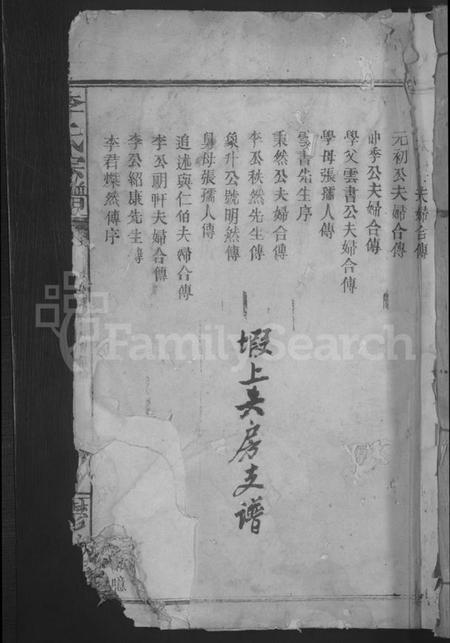 夫婦合傳
元初公夫婦合傳
仲季公夫婦合傳
學父雲書公夫婦合傳
學母張孺人傳
雲書先生序
秉然公夫婦合傳
李公秩然先生傳
奐升公號明然傳
舅母張孺人傳
追述與仁伯夫婦合傳
李公明軒夫婦合傳
李公紹康先生傳
李君燦然傳序
塅上共房支譜
李氏宗譜
FamilySearch